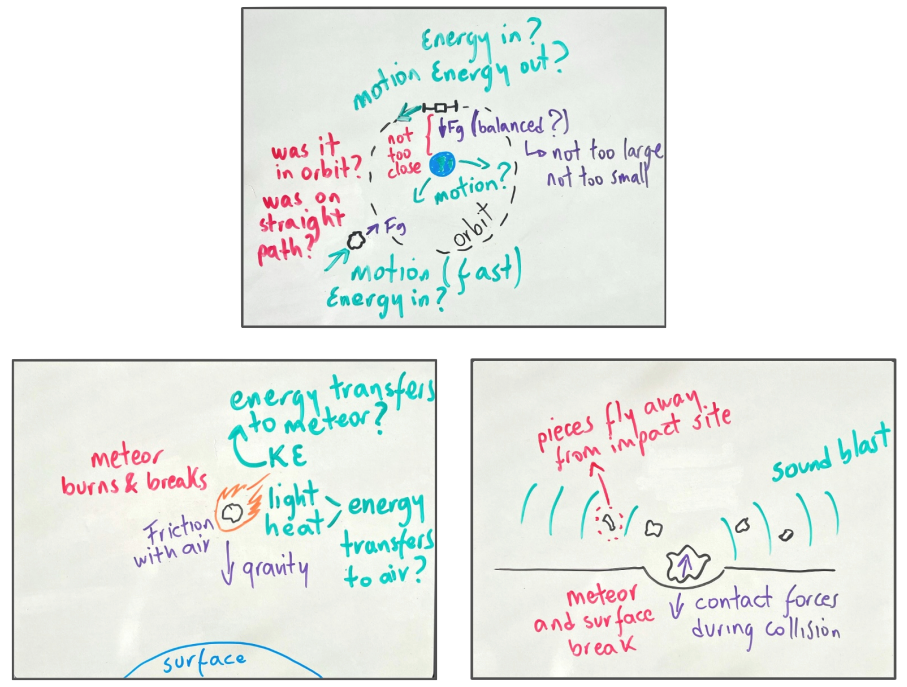 Energy in?
motion Energy out?
not
too
close
Fg (balanced?)
not too large
not too small
was it
in orbit?
was on
straight
path?
motion?
Fg
orbit
motion (fast)
Energy in?
energy transfers
to meteor?
KE
meteor
burns & breaks
light
heat
energy
transfers
to air?
Friction
with air
gravity
surface
pieces fly away
from impact site
sound blast
meteor
and surface
break
contact forces
during collision